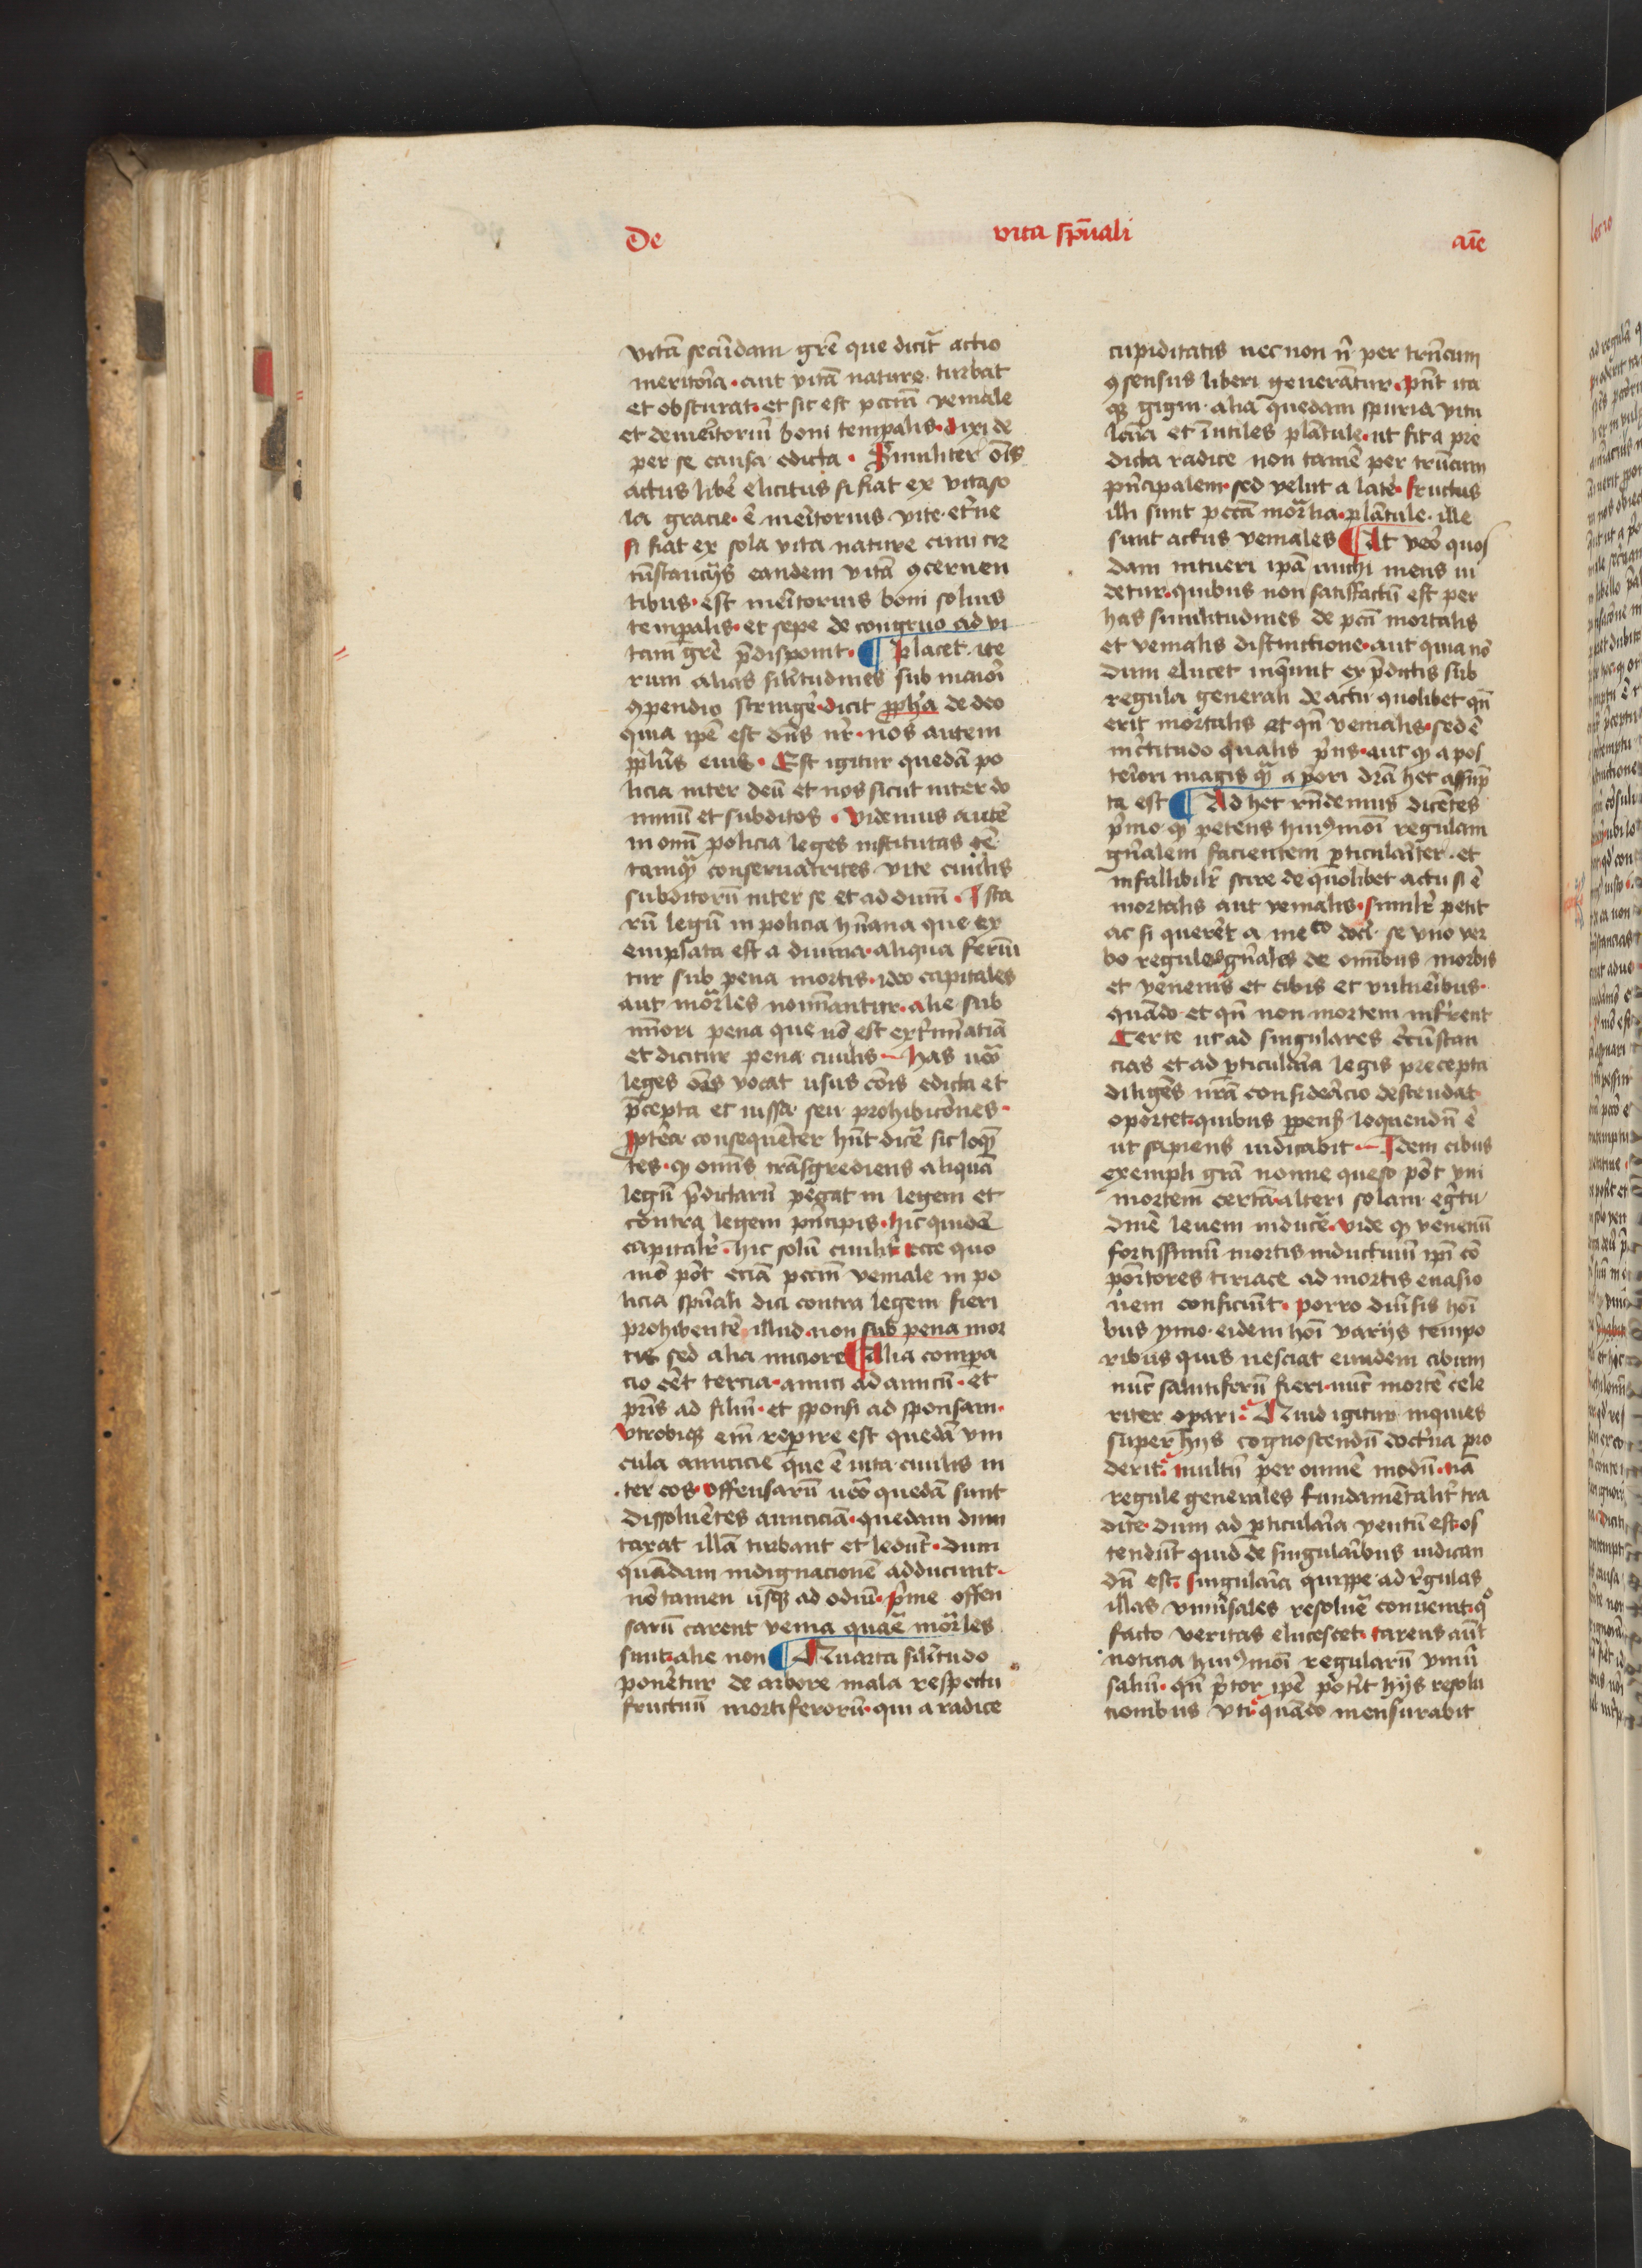 De vita spũali aīe
vitā secūdam grē que dicit̄ actio
meritoīa · aut vitā nature · turbat
et obscurat · et sic est pcctm̄ veniale
et demeĩtoriũ boni temp̱alis · dixi de
per se causa edicta · Similiter oīs
actus libē elicitus si fiat ex vita so
la gracie · ē meĩtorius vite · et̓ne
si fiat ex sola vita nature cum cir
cūstancijs eandem vitā ꝯcernen
tibus · est meĩtorius boni solius
temp̱alis · et sepe de congruo ad vi
tam grē p̄disponit · ¶ Placet ite
rum alias silĩtudines sub maiori
ꝯpendio string̓e · dicit ꝓph̄a de deo
quia ip̄e est dn̄s nr̄ · nos autem
pp̄lūs eius · Est igitur quedā po
licia inter deū et nos sicut inter do
minū et subditos · Videmus autē
in omī policia leges institutas eē
tamqͣ conseruatrices vite ciuilis
subditorū inter se et ad dūm · Ista
rū legū in policia hūana que ex
emplata est a diuina · aliqua ferūn
tur sub pena mortis · ideo capitales
aut moͣrles nomināntur · alie sub
minori pena que nō est ext̓minatiā
et dicitur pena ciuilis – has ūo
leges oēs vocat usus cōis edicta et
p̄cepta et iussa seu prohibicōnes ·
ꝓpt̓ea consequēter hn̄t dicē sic loqūe
tes · ꝙ omīs trāsgrediens aliquā
legū p̄dictarū peccat in legem et
contra legem pn̄cipis · hic quidē
capitalr̄ · hic solū ciuilr̄ ecce quo
mō pōt eciā pcctm̄ veniale in po
licia spūali dici contra legem fieri
prohibentē illud · non sub pena mor
tis sed alia miciore ¶ Alia compa
cio eēt tercia · amici ad amicū · et
pr̄is ad filiū · et sponsi ad sponsam ·
Vtrobiqꝫ em̄ rep̱ire est quedā vin
cula amicicie que ē vita ciuilis in
ter eos · offensarū ūo quedā sunt
dissoluētes amiciciā · quedam dum
taxat illā turbant et ledūt · dum
quādam indignacionē adducunt ·
nō tamen usqꝫ ad odiū · p̓me offen
sarū carent venia quare moͣrles
sunt · alie non ¶ Quarta silĩtudo
ponet̓ur de arbore mala respectu
fructuū mortiferorū · qui a radice
cupiditatis nec non n̄ per trūcum
ꝯsensus liberi generātur · pn̄t ita
qꝫ gigni alia quedam spuria vitu
lam̄ia et īutiles plātule · ut sit a pre
dicta radice non tamē per trūcum
pn̄cipalem · sed velut a late̓ · fructus
illi sunt pcctā moͣrtia · plātule · ille
sunt actus veniales ¶ At ūo quos
dam intueri ip̄a michi mens ui
detur · quibus non satisfactū est per
has similitudines de pctī mortalis
et venialis distinctione · aut quia nō
dum elucet inquiūt ex p̄dictis sub
regula generali de actu quolibet qn̄
erit mortalis et qn̄ venialis · sed ē
inc̓titudo qualis prius · aut ꝙ a pos
teriori magis qͣ a p̓ori dr̄a hec assūp
ta est ¶ Ad hec rn̄demus dicētes
p̓mo · ꝙ petens huiꝰmōi regulam
gn̄alem facientem p̱ticularīter · et
infallibilr̄ scire de quolibet actu si ē
mortalis aut venialis · similr̄ petit
ac si quer̓et a medico doc̓i se vno ver
bo regulas gn̄ales de omībus morbis
et venenis et cibis et vulneribus ·
quādo et qn̄ non mortem inferrent
Certe ut ad singulares circūstan
cias et ad p̱ticularia legis precepta
diligēs nr̄a consideācio descendat
oportet · quibus p̱pensis loquendū ē
ut sapiens iudicabit – Idem cibus
exempli grā nonne queso pōt vni
mortem certā · alteri solam egr̓tu
dinē leuem inducere · vide ꝙ venenū
fortissimū mortis inductiuū ip̄i cō
poītores tiriace ad mortis euasio
nem conficiūt · porro diu̓sis hoī
bus ymo · eidem hoī varijs tempo
ribus quis nesciat eundem cibum
nūc salutiferū fieri · nūc mortē cele
riter op̱ari · Quid igitur inquies
super hijs cognoscendū doctrīa pro
derit · multū per omnē modū · nā
regule generales fundamētalit̓ tra
dite · dum ad p̱ticularīa ventū est · os
tendūt quid de singularībus iudican
dū est · singularīa quippe ad rēgulas
illas vniūsales resoluere conuenit · qͦ
facto veritas elucescet · carens aūt
noticia huiꝰmōi regularū vniū
saliū · qn̄ p̄tor ip̄e pot̓it hijs resolu
tionibus vti · quādo mensurabit